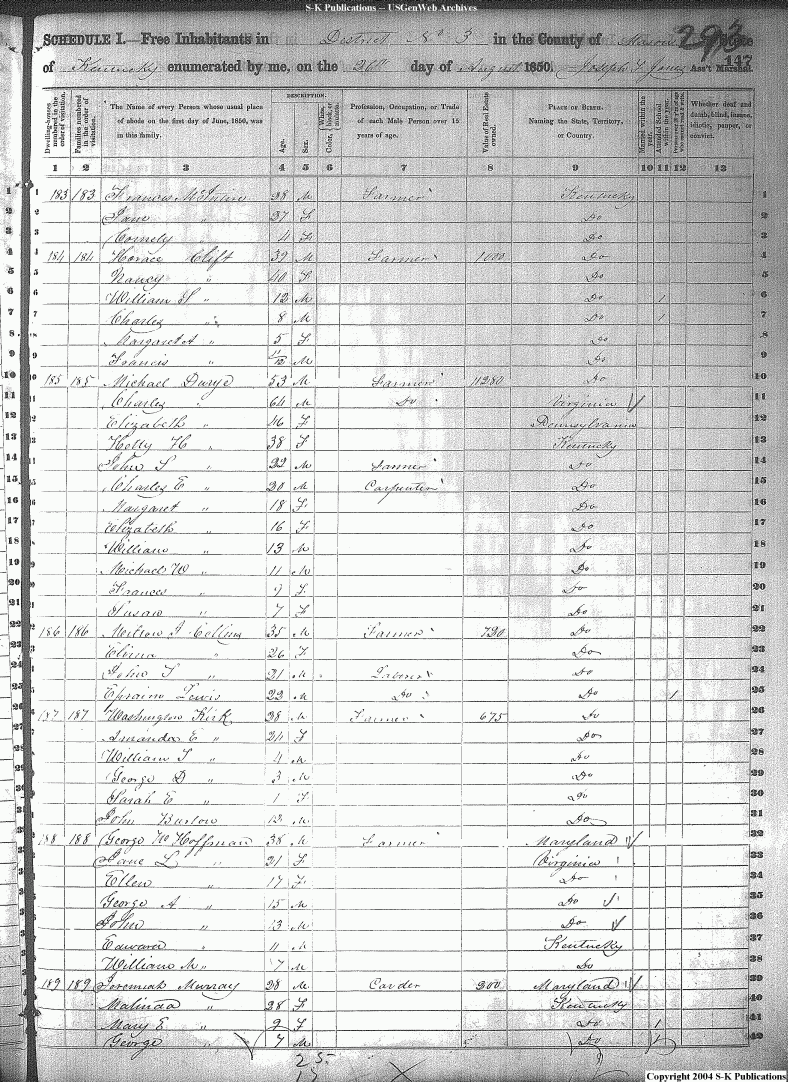 S-K Publications -- USGenWeb Archives
SCHEDULE I.—Free Inhabitants in District No 3 in the County of Mason State 293
147
of Kentucky enumerated by me, on the 26th day of August 1850. Joseph F. Jones Ass't Marshal.
Dwelling-houses numbered in the order of visitation.
Families numbered in the order of visitation.
The Name of every Person whose usual place of abode on the first day of June, 1850, was in this family.
DESCRIPTION.
Age.
Sex.
Color,
Profession, Occupation, or Trade of each Male Person over 15 years of age.
Value of Real Estate owned.
PLACE OF BIRTH.
Naming the State, Territory, or Country.
Married within the year.
Attended School within the year.
Whether deaf and dumb, blind, insane, idiotic, pauper, or convict.
1 2 3 4 5 6 7 8 9 10 11 12 13
1 183 183 Francis 38 M Farmer Kentucky 1
2 Jane " 27 F Do 2
3 Comely " 4 F Do 3
4 184 184 Horace Clift 39 M Farmer 1000 Do 4
5 Nancy " 40 F Do 5
6 William H " 12 M Do 1 6
7 Charles " 8 M Do 1 7
8 Margaret A " 5 F Do 8
9 Francis " 11/12 M Do 9
10 185 185 Michael Durye 53 M Farmer 11280 Do 10
11 Charles " 64 M Do Virginia 11
12 Elizabeth " 46 F Pennsylvania 12
13 Hetty H " 38 F Kentucky 13
14 John S " 22 M Farmer Do 14
15 Charles E " 20 M Carpenter Do 15
16 Margaret " 18 F Do 16
17 Elizabeth " 16 F Do 17
18 William " 13 M Do 18
19 Michael W " 11 M Do 19
20 Frances " 9 F Do 20
21 Susan " 7 F Do 21
22 186 186 Milton J Collins 35 M Farmer 720 Do 22
23 " 26 F Do 23
24 John S " 21 M Laborer Do 24
25 Ephraim Lewis 22 M Do Do 1 25
26 187 187 Washington Kirk 28 M Farmer 675 Do 26
27 Amanda E " 24 F Do 27
28 William S " 4 M Do 28
29 George D " 3 M Do 29
30 Sarah E " 1 F Do 30
31 John Burton 12 M Do 31
32 188 188 George W Hoffman 38 M Farmer Maryland 32
33 Jane L " 21 F Virginia 33
34 Ellen " 17 F Do 34
35 George A " 15 M Do 35
36 John " 13 M Do 36
37 Edward " 11 M Kentucky 37
38 William M " 7 M Do 38
39 189 189 Jeremiah Murray 28 M Carder 200 Maryland 39
40 Malinda " 28 F Kentucky 40
41 Mary E " 9 F Do 1 41
42 George " 7 M Do 1 42
25
Copyright 2004 S-K Publications